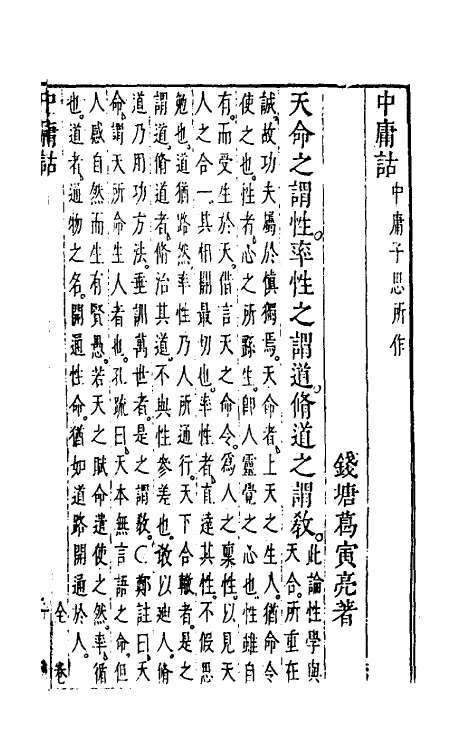 中庸詁 中庸子思所作
錢塘葛寅亮著
天命之謂性。率性之謂道。脩道之謂敎。此論性學與
天合。所重在
誠。故功夫屬於愼獨焉。天命者、上天之生人。猶命令
使之也。性者、心之所繇生。卽人靈覺之心也。性雖自
有。而受生於天。借言天之命令。爲人之稟性。以見天
人之合一。其相關最切也。率性者、直達其性。不假思
勉也。道猶路然。率性乃人所通行。天下合轍者。是之
謂道。脩道者、脩治其道。不與性參差也。敎以廸人。脩
道乃用功方法。垂訓萬世者。是之謂敎。〇鄭註曰、天
命、謂天所命生人者也。孔疏曰、天本無言語之命。但
人感自然而生。有賢愚。若天之賦命遣使之然。率、循
也。道者、通物之名。開通性命。猶如道路開通於人。
中庸詁
全卷